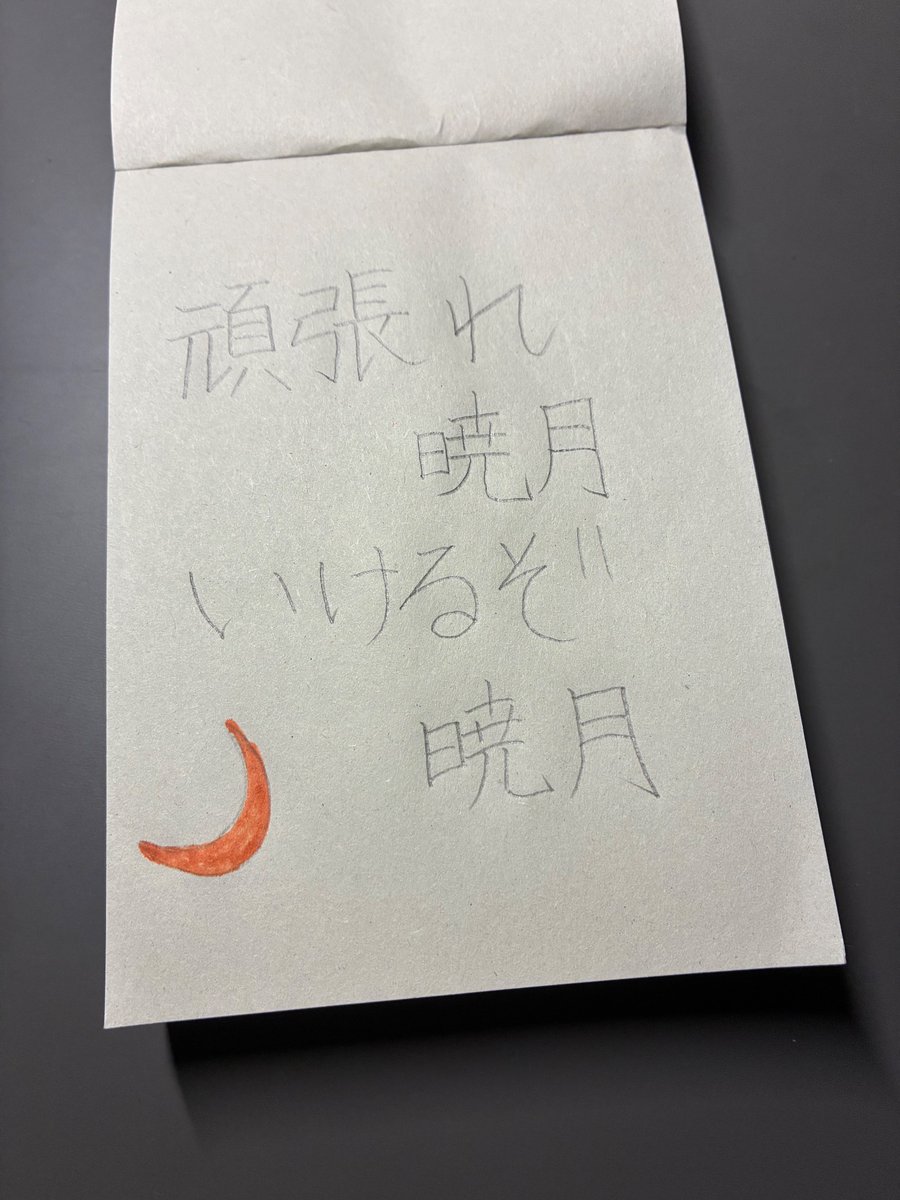 頑張れ
暁月
いけるぞ
暁月